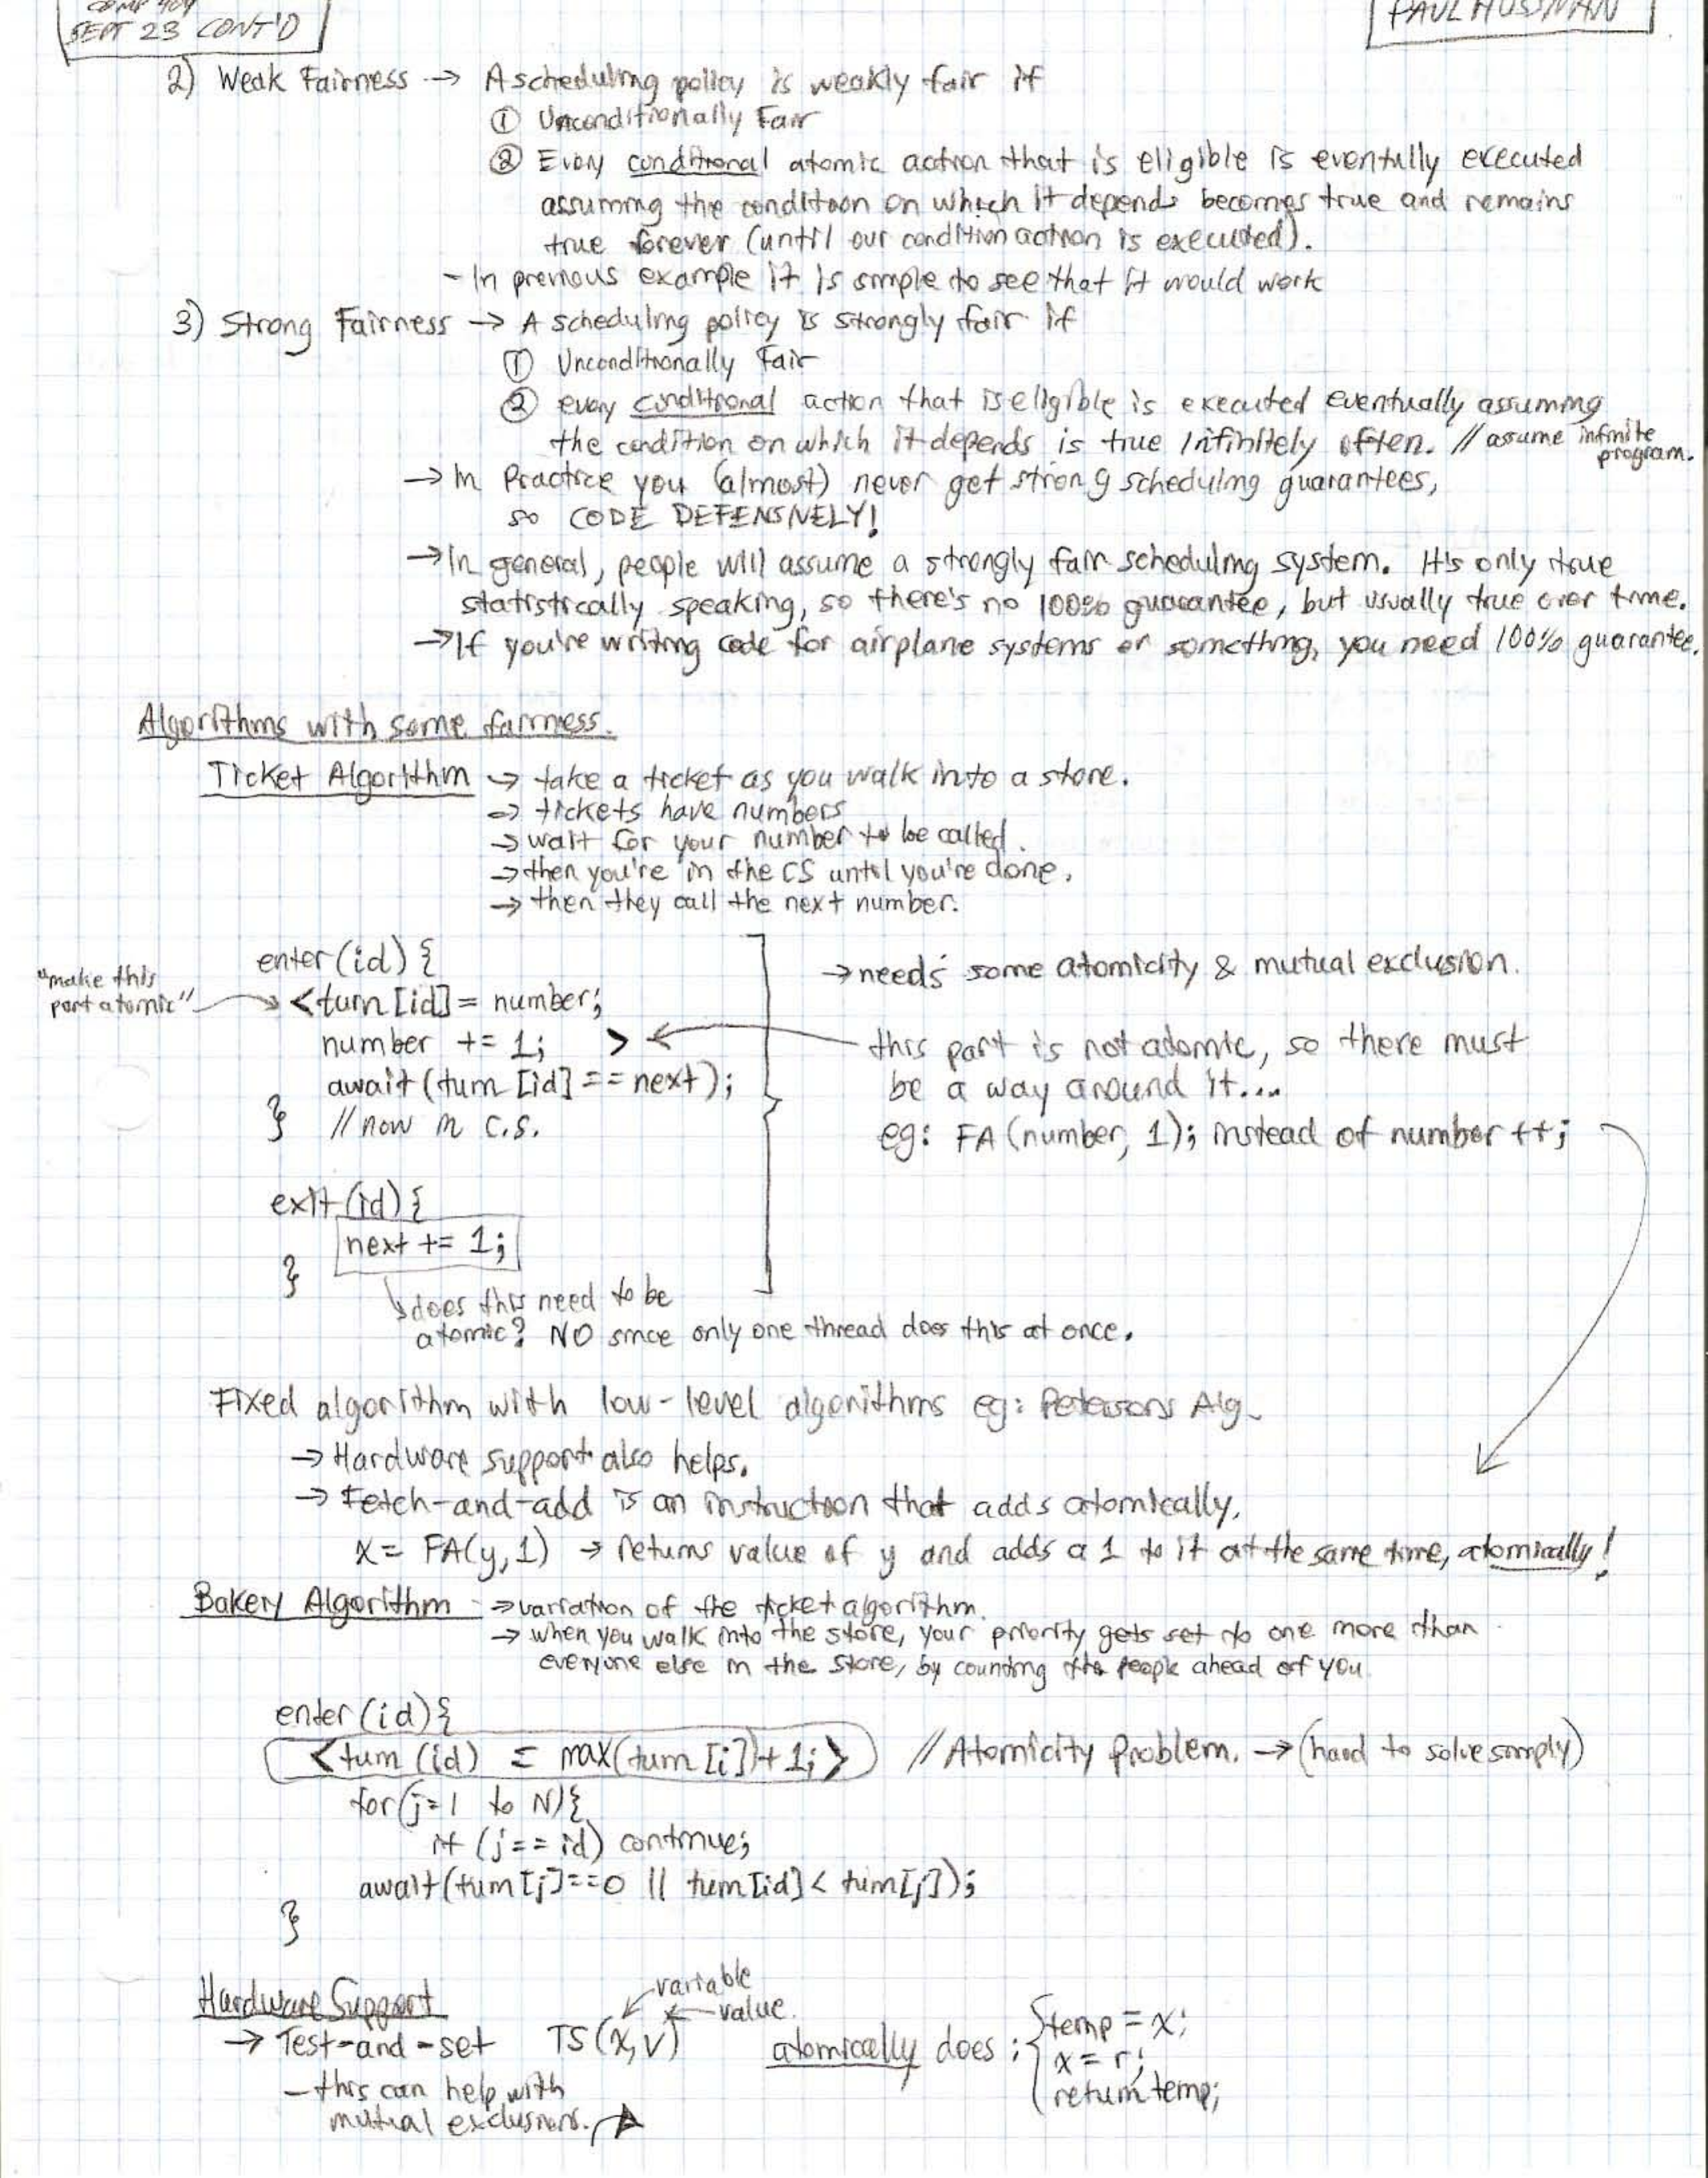 COMP 409
SEPT 23 CONT'D
PAUL HUSSMAN
2) Weak Fairness → A scheduling policy is weakly fair if
① Unconditionally Fair
② Every conditional atomic action that is eligible is eventully executed
assuming the condition on which it depends becomes true and remains
true forever (until our condition action is executed).
- In previous example it is simple to see that it would work
3) Strong Fairness → A scheduling policy is strongly fair if
① Unconditionally Fair
② every conditional action that is eligible is executed eventually assuming
the condition on which it depends is true infinitely often. // assume infinite
program.
→ In Practice you (almost) never get strong scheduling guarantees,
so CODE DEFENSIVELY!
→ In general, people will assume a strongly fair scheduling system. It's only true
statistically speaking, so there's no 100% guarantee, but usually true over time.
→ If you're writing code for airplane systems or something, you need 100% guarantee.
Algorithms with some fairness.
Ticket Algorithm → take a ticket as you walk into a store.
→ tickets have numbers
→ wait for your number to be called.
→ then you're in the CS until you're done.
→ then they call the next number.
enter(id) {
"make this
part atomic"
<turn[id] = number;
number += 1; >
await(turn[id] == next);
} // now in c.s.
→ needs some atomicity & mutual exclusion.
this part is not atomic, so there must
be a way around it...
eg: FA(number, 1); instead of number++;
exit(id) {
next += 1;
}
does this need to be
atomic? NO since only one thread does this at once.
Fixed algorithm with low-level algorithms eg: Petersons Alg.
→ Hardware support also helps.
→ Fetch-and-add is an instruction that adds atomically.
x = FA(y, 1) → returns value of y and adds a 1 to it at the same time, atomically!
Bakery Algorithm → variation of the ticket algorithm.
→ when you walk into the store, your priority gets set to one more than
everyone else in the store, by counting the people ahead of you.
enter(id) {
<turn(id) = max(turn[i])+1;> // Atomicity Problem. → (hard to solve simply)
for(j=1 to N) {
if (j == id) continue;
await(turn[j]==0 || turn[id] < turn[j]);
}
Hardware Support
variable
value.
→ Test-and-set TS(x,v) atomically does: { temp = x;
x = r;
return temp;
- this can help with
mutual exclusions.